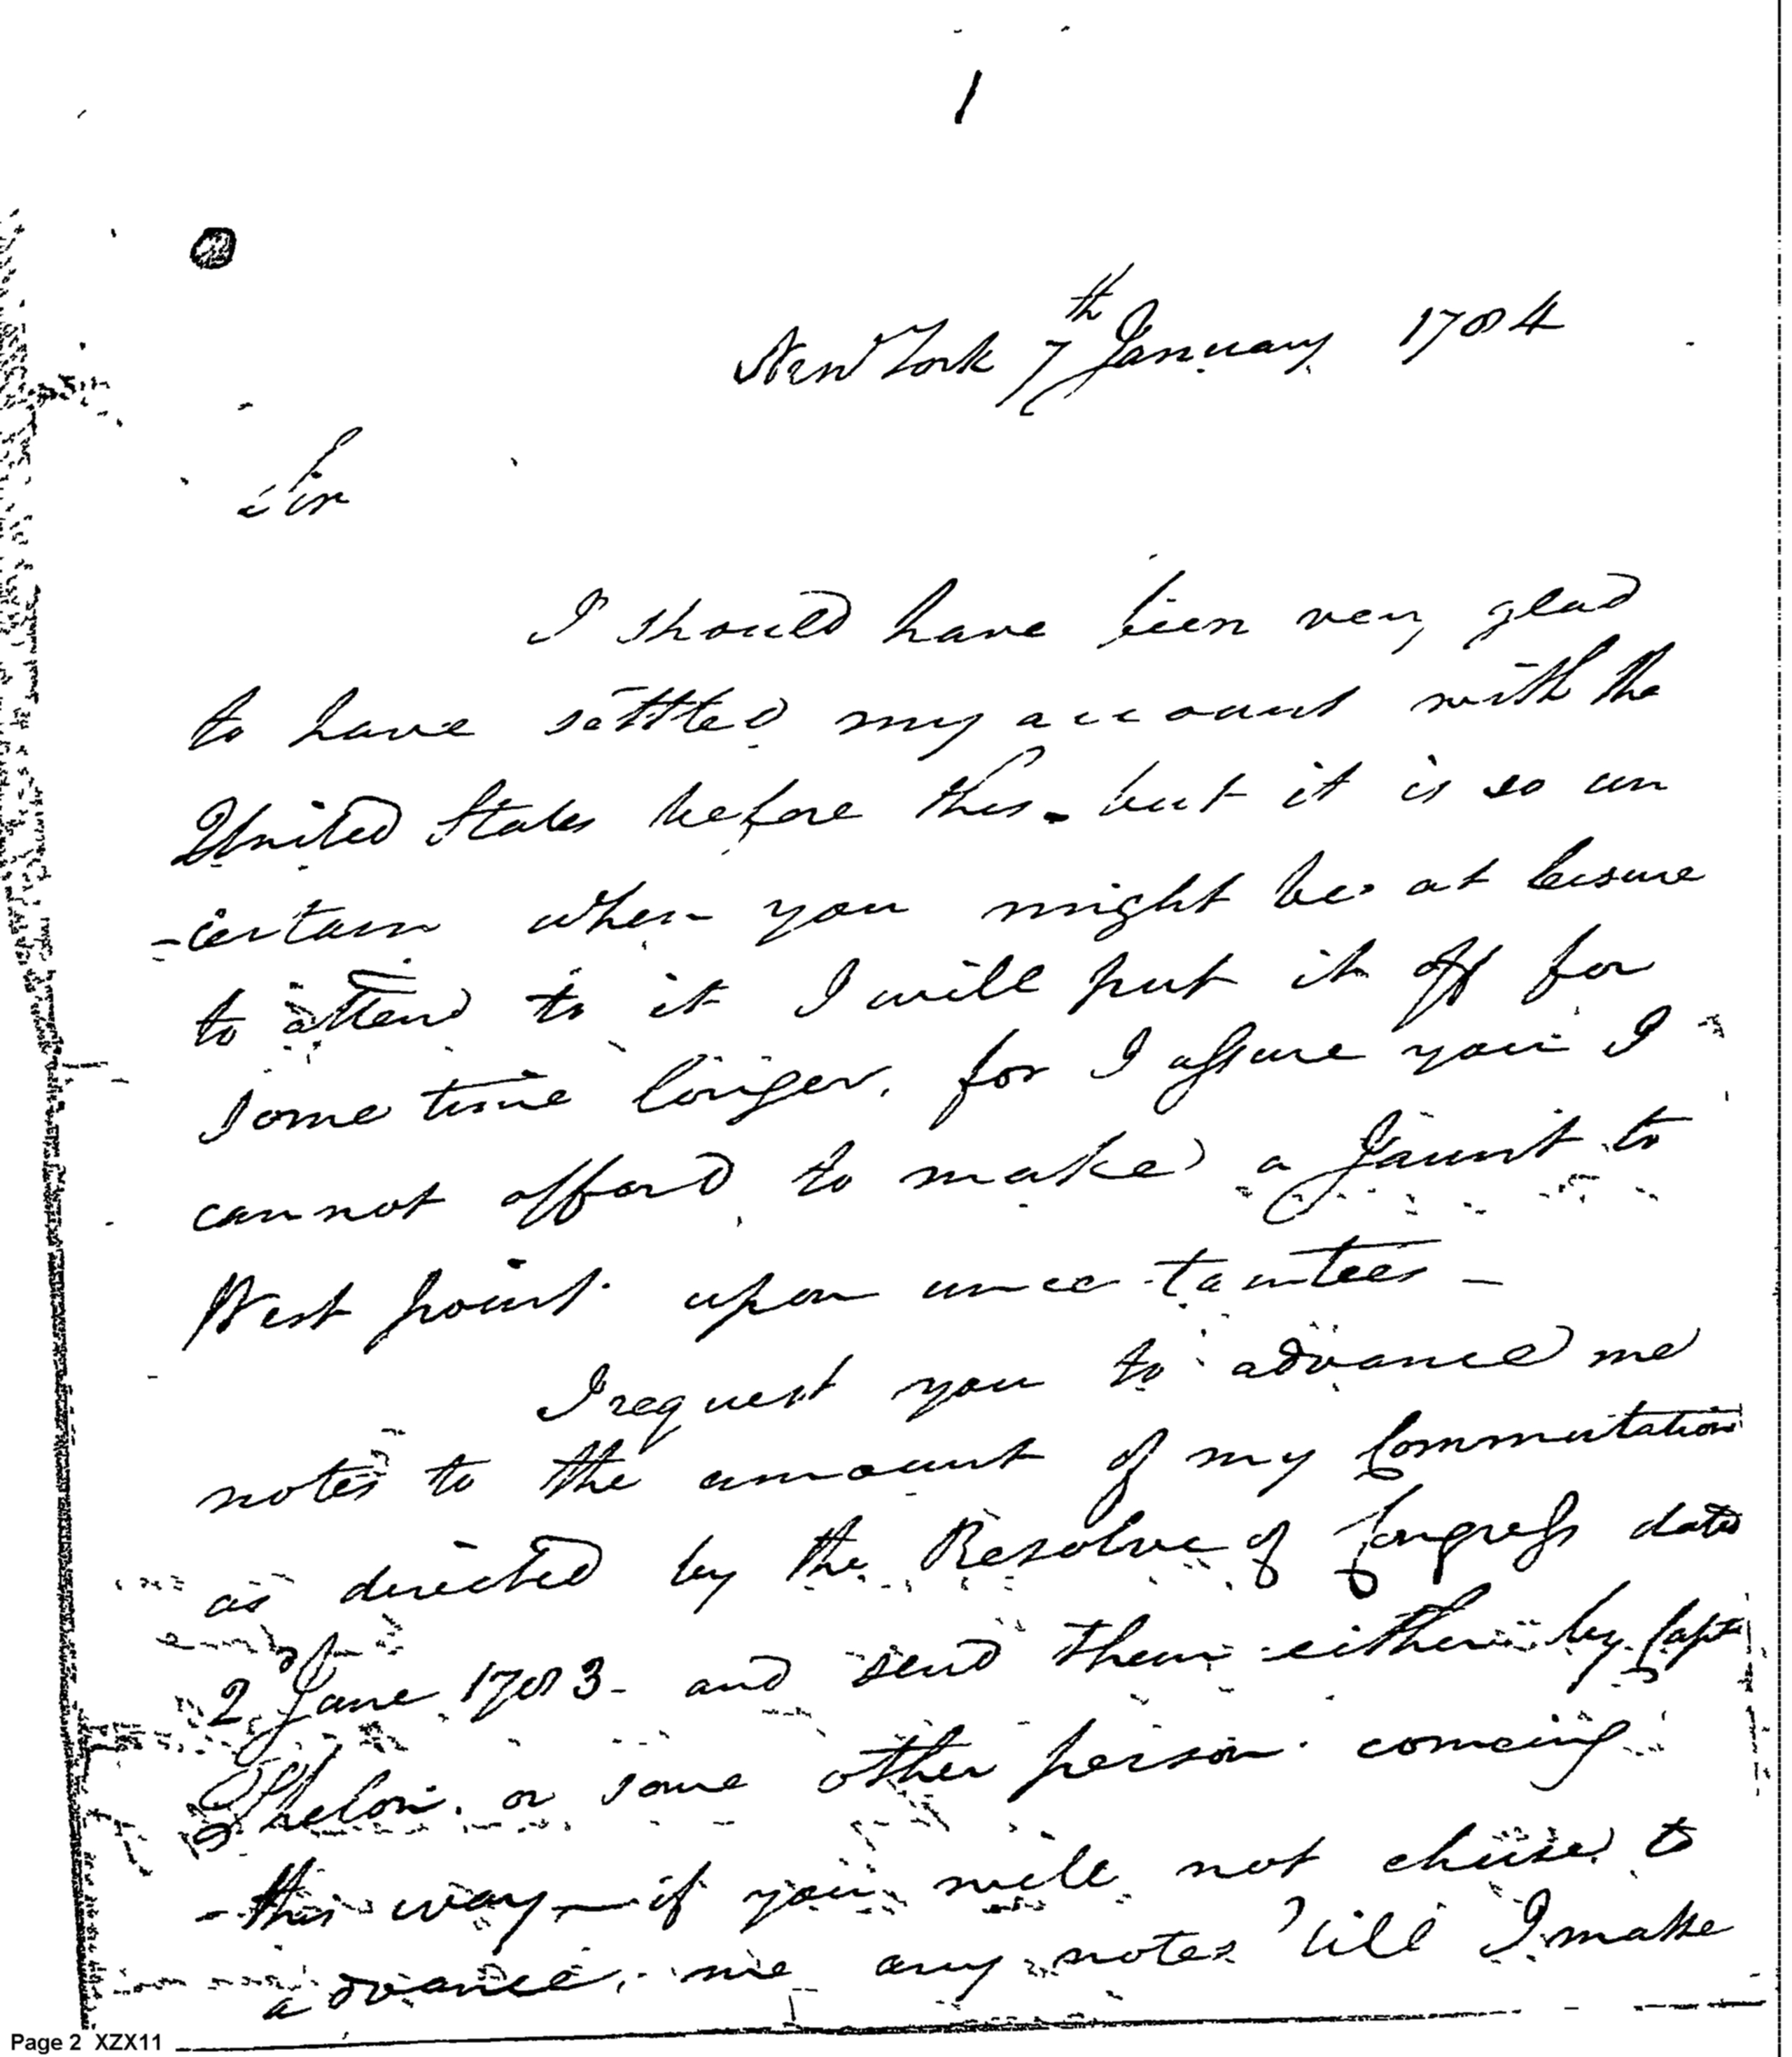 1
New York 7th January 1784
Sir
I should have been very glad
to have settled my account with the
United States before this - but it is so un
-certain when you might be at leisure
to attend to it I will put it off for
some time longer, for I assure you I
cannot afford to make a Jaunt to
West point upon uncertainties -
I request you to advance me
notes to the amount of my Commutation
as directed by the Resolve of Congress date
2 June 1783 - and send them either by Capt
Phelon. or some other person comeing
this way - if you will not chuse to
advance me any notes 'till I make
Page 2 XZX11